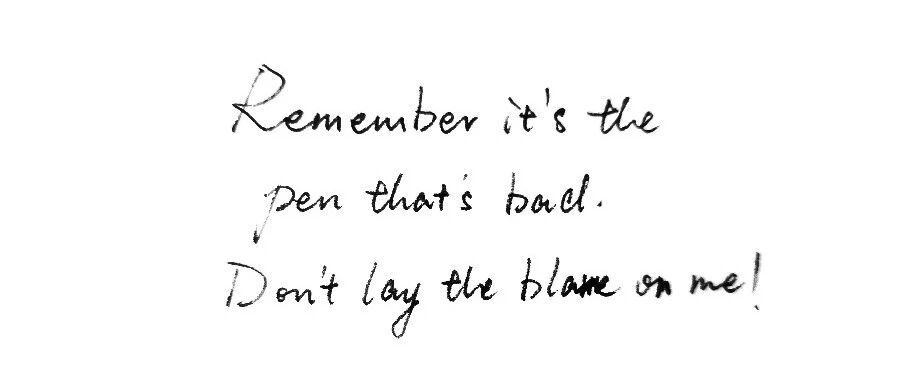 Remember it's the
pen that's bad.
Don't lay the blame on me!